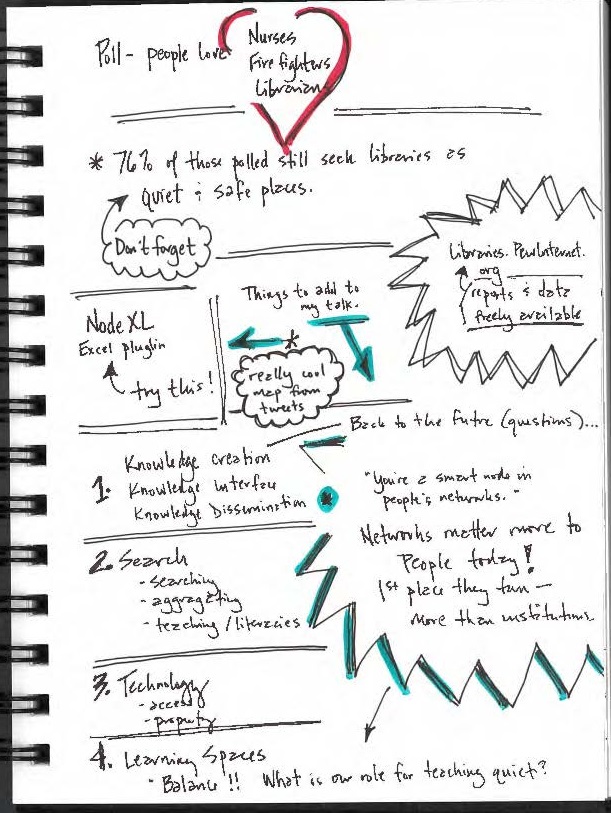 Poll - people love
Nurses
Fire fighters
Librarians
* 76% of those polled still seek libraries as
quiet & safe places.
Don't forget
Libraries. PewInternet.
org
reports & data
freely available
Things to add to
my talk.
Node XL
Excel plugin
try this!
*
really cool
map from
tweets
Back to the Future (questions)...
1. Knowledge creation
Knowledge Interface
Knowledge Dissemination
"You're a smart node in
people's networks."
Networks matter more to
People today!
1st place they turn —
more than institutions.
2. Search
- searching
- aggragating
- teaching / literacies
3. Technology
- access
- property
4. Learning Spaces
- Balance!! What is our role for teaching quiet?